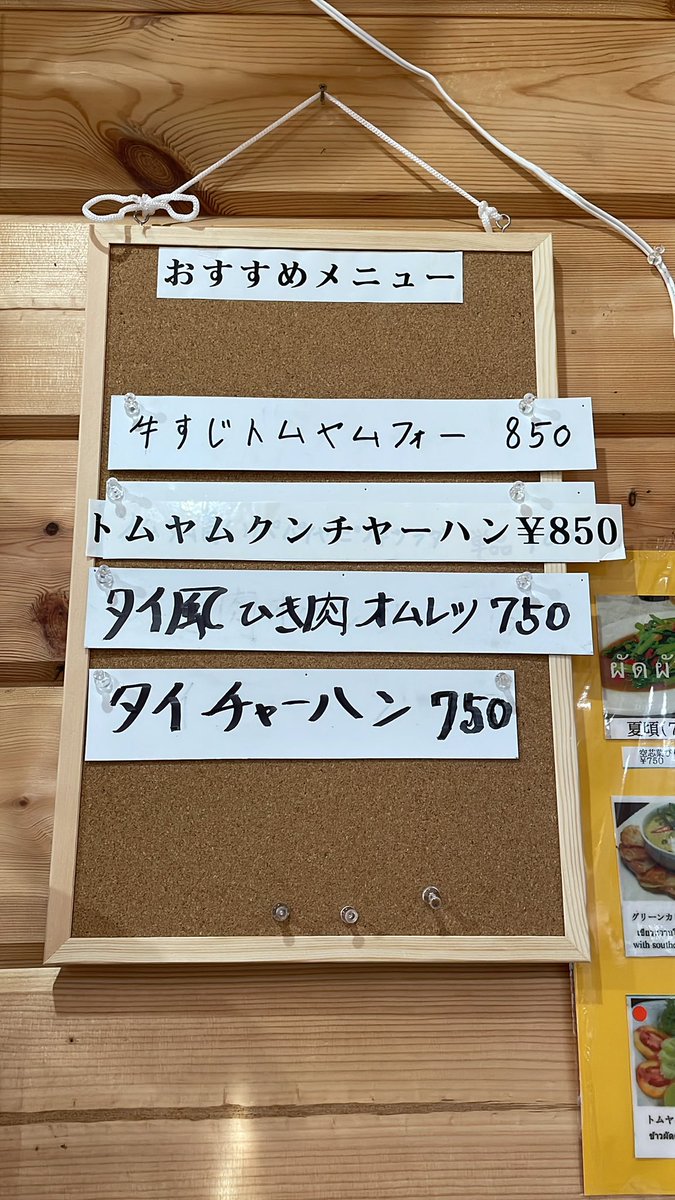 おすすめメニュー
牛すじトムヤムフォー 850
トムヤムクンチャーハン¥850
タイ風 ひき肉オムレツ 750
タイ チャーハン 750
ผัดผั
夏頃(7
¥750
グリーンカ
with south
トムヤ
ข้าวผัด